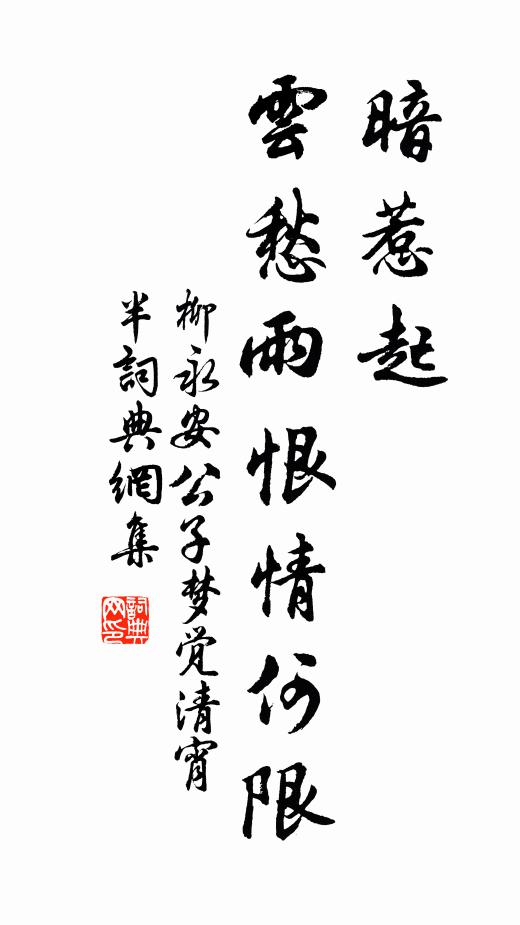 暗惹起
雲愁雨恨情何限
柳永安公子梦觉清宵
半詞典網集
詞典
网印